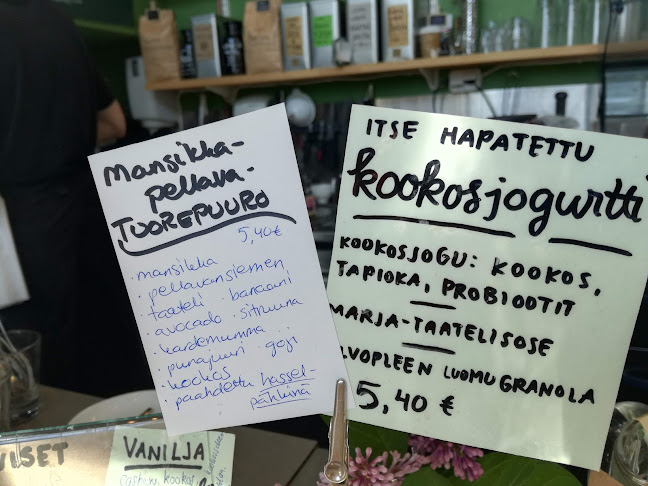 Mansikka-
pellava-
TUOREPUURO
5,40€
· mansikka
· pellavansiemen
· taateli banaani
· avocado sitruuna
· kardemumma
· punajuuri goji
· kookos
· paahdettu hassel-
pähkinä
ITSE HAPATETTU
kookosjogurtti
KOOKOSJOGU: KOOKOS,
TAPIOKA, PROBIOOTIT
MARJA-TAATELISOSE
VOPLEEN LUOMUGRANOLA
5,40 €
VISET
VANILJA
cashew, kookos